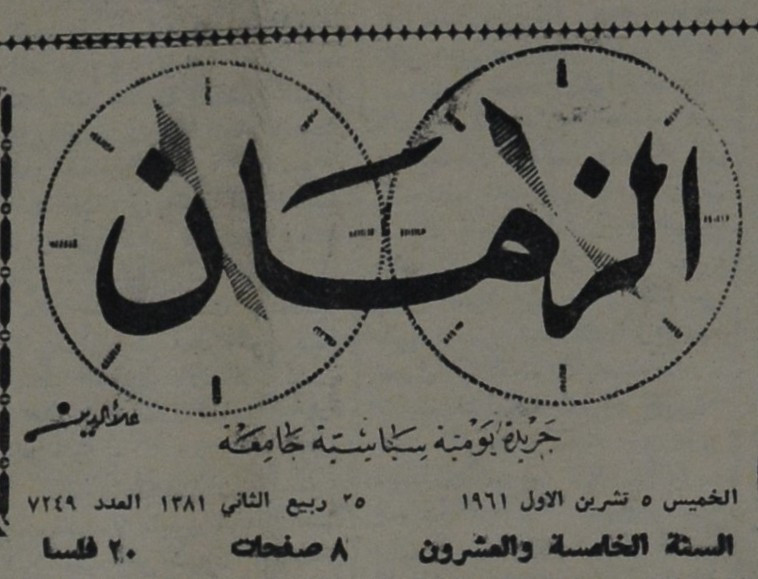 الزمان
علاء الدين
جريدة يومية سياسية جامعة
الخميس ٥ تشرين الاول ١٩٦١ ٢٥ ربيع الثاني ١٣٨١ العدد ٧٢٤٩
السنة الخامسة والعشرون ٨ صفحات ٢٠ فلسا